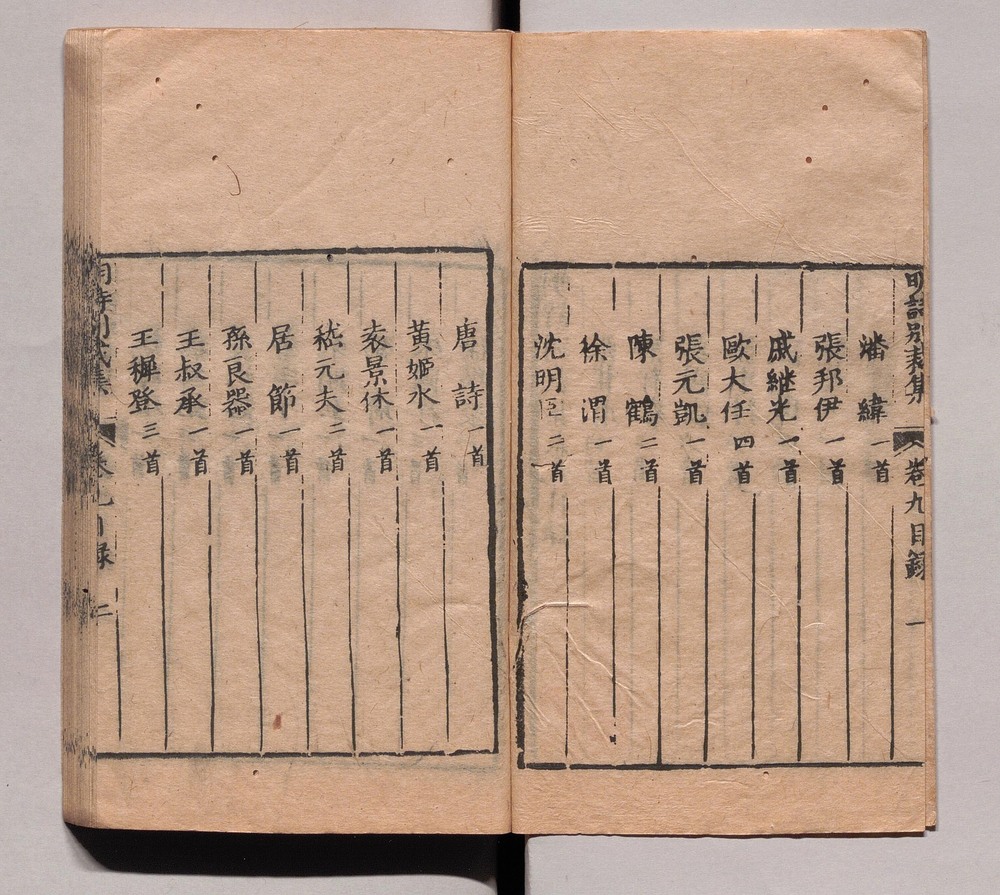 明詩別裁集 卷九目錄 一
潘緯 一首
張邦伊 一首
戚繼光 一首
歐大任 四首
張元凱 一首
陳鶴 二首
徐渭 一首
沈明臣 二首
唐詩 一首
黃姬水 一首
袁景休 一首
嵇元夫 二首
居節 一首
孫良器 一首
王叔承 一首
王穉登 三首
明詩別裁集 卷九目錄 二